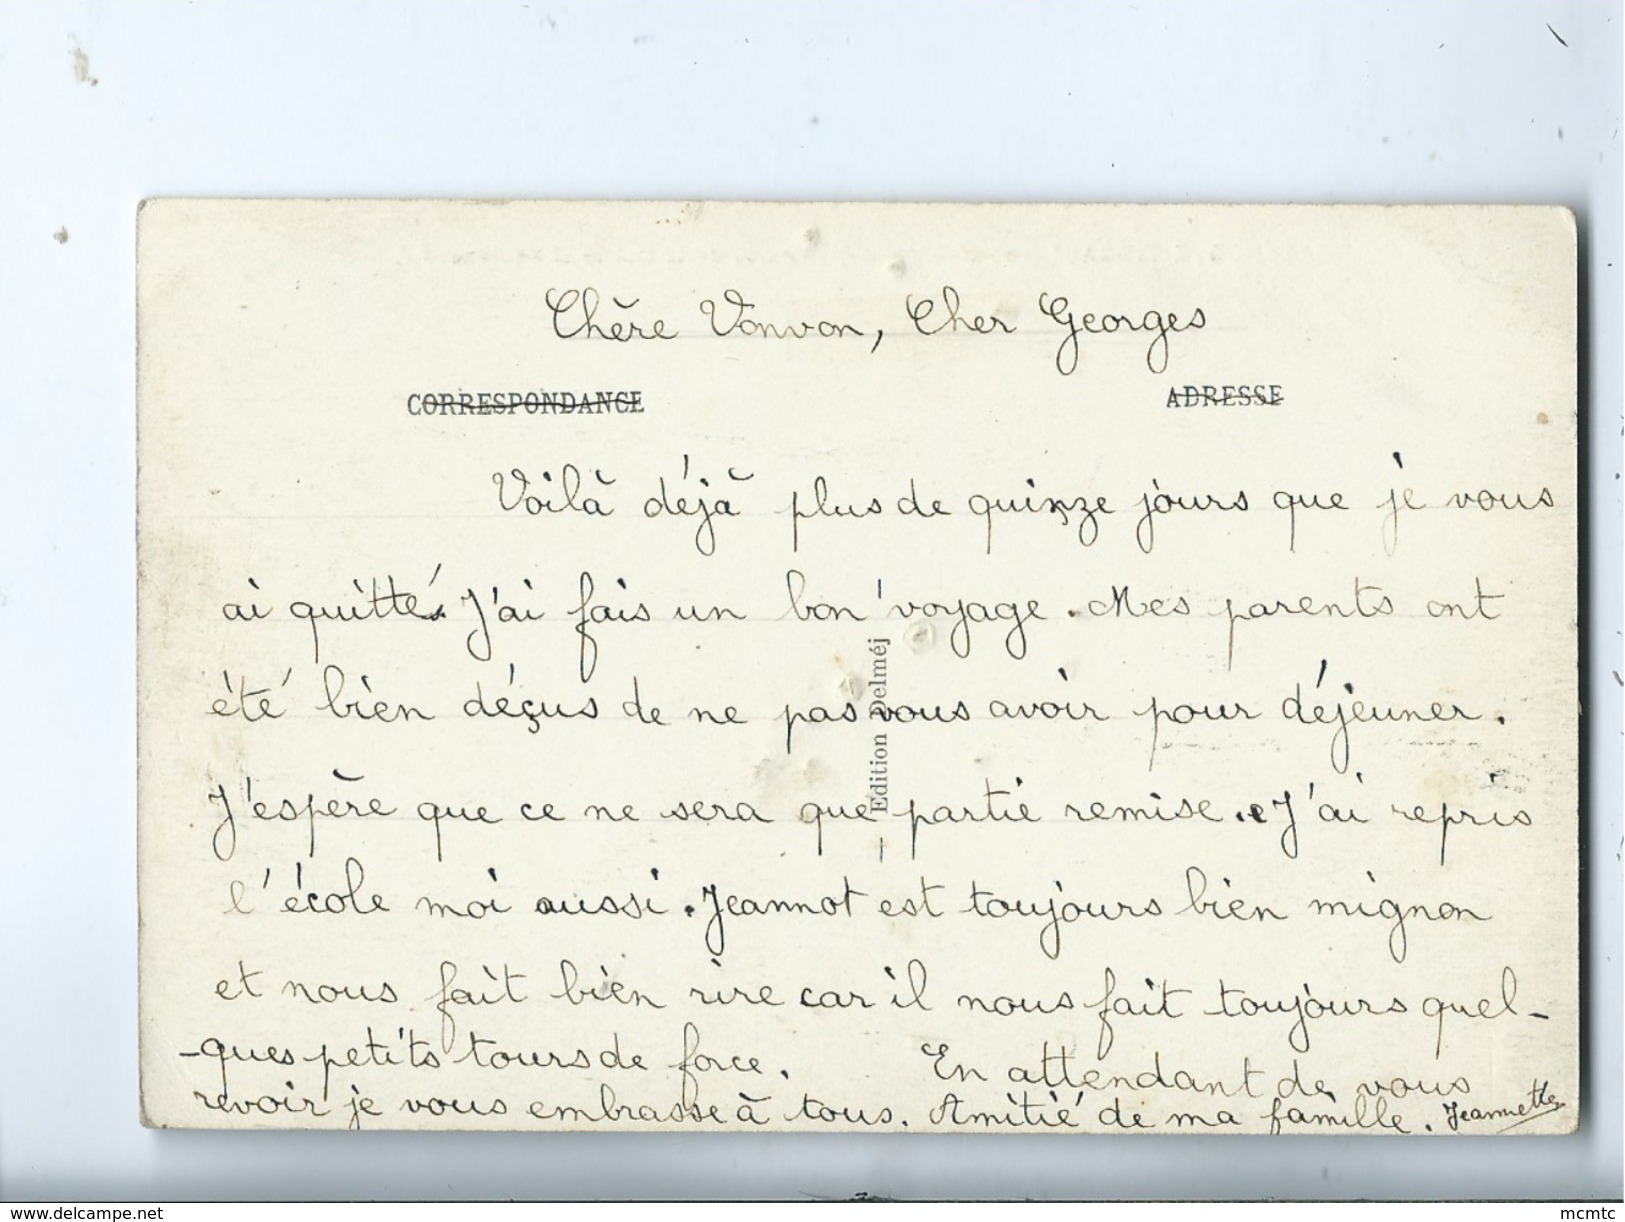 Chère Vonvon, Cher Georges
CORRESPONDANCE ADRESSE
Voilà déjà plus de quinze jours que je vous
ai quitté. J'ai fais un bon voyage. Mes parents ont
été bien déçus de ne pas vous avoir pour déjeuner.
J'espère que ce ne sera que partie remise. J'ai repris
l'école moi aussi. Jeannot est toujours bien mignon
et nous fait bien rire car il nous fait toujours quel-
-ques petits tours de force. En attendant de vous
revoir je vous embrasse à tous. Amitié de ma famille. Jeannette
Edition Delméj
www.delcampe.net
mcmtc